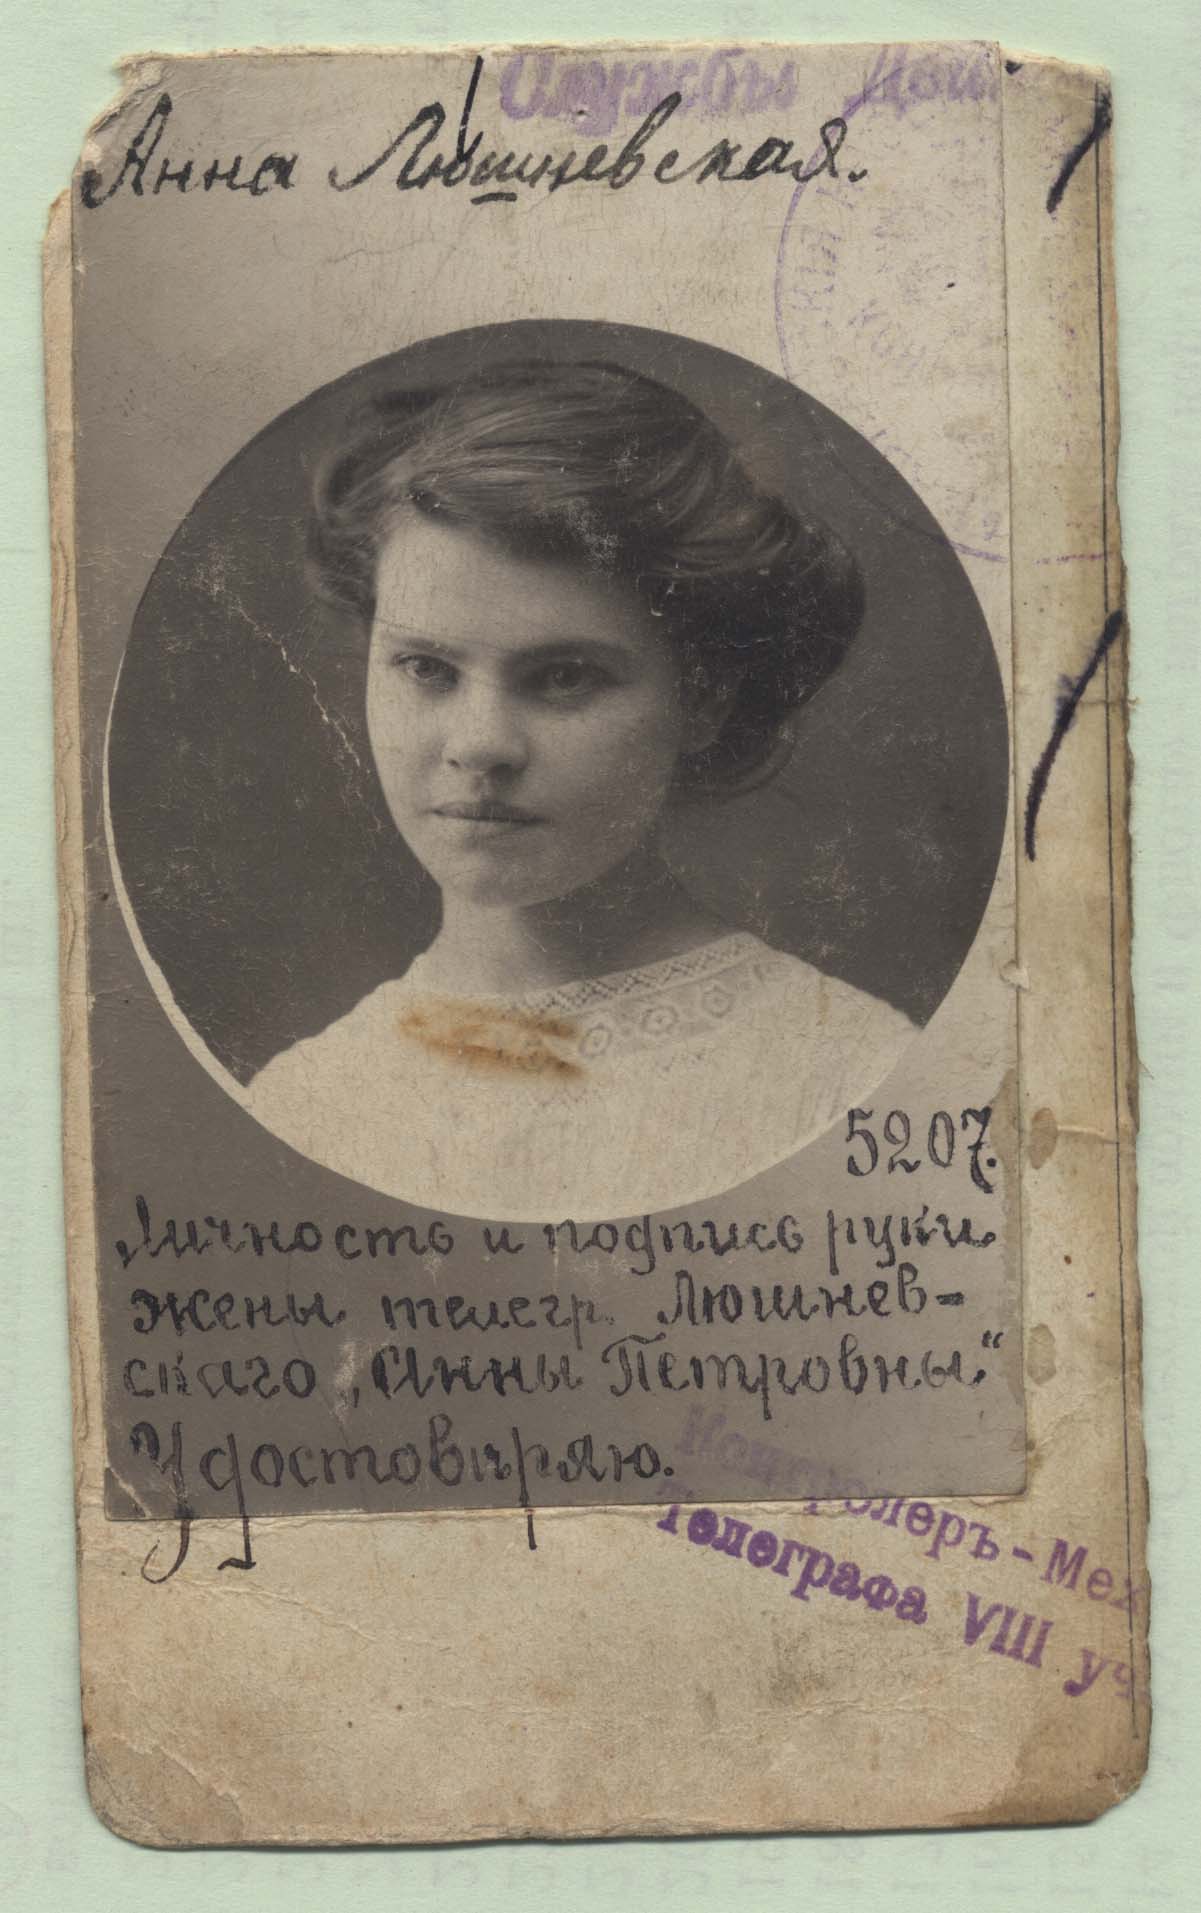 Службы
Анна Люшневская.
5207.
Личность и подпись руки
жены телегр. Люшнев-
скаго „Анны Петровны“
Удостовѣряю.
Контролеръ-Мех
Телеграфа VIII уч